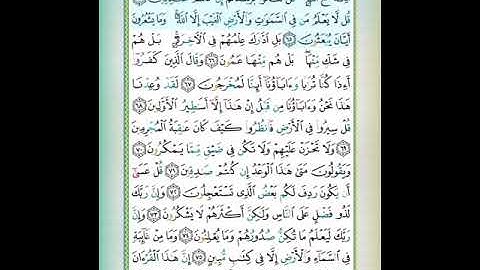 قُل لَّا يَعْلَمُ مَن فِي السَّمَٰوَٰتِ وَالْأَرْضِ الْغَيْبَ إِلَّا اللَّهُ ۚ وَمَا يَشْعُرُونَ
أَيَّانَ يُبْعَثُونَ ﴿٦٥﴾ بَلِ ادَّٰرَكَ عِلْمُهُمْ فِي الْآخِرَةِ ۚ بَلْ هُمْ
فِي شَكٍّ مِّنْهَا ۖ بَلْ هُم مِّنْهَا عَمُونَ ﴿٦٦﴾ وَقَالَ الَّذِينَ كَفَرُوا
أَءِذَا كُنَّا تُرَٰبًا وَءَابَاؤُنَا أَئِنَّا لَمُخْرَجُونَ ﴿٦٧﴾ لَقَدْ وُعِدْنَا
هَٰذَا نَحْنُ وَءَابَاؤُنَا مِن قَبْلُ إِنْ هَٰذَا إِلَّا أَسَٰطِيرُ الْأَوَّلِينَ
﴿٦٨﴾ قُلْ سِيرُوا فِي الْأَرْضِ فَانظُرُوا كَيْفَ كَانَ عَٰقِبَةُ الْمُجْرِمِينَ
﴿٦٩﴾ وَلَا تَحْزَنْ عَلَيْهِمْ وَلَا تَكُن فِي ضَيْقٍ مِّمَّا يَمْكُرُونَ ﴿٧٠﴾
وَيَقُولُونَ مَتَىٰ هَٰذَا الْوَعْدُ إِن كُنتُمْ صَٰدِقِينَ ﴿٧١﴾ قُلْ عَسَىٰ
أَن يَكُونَ رَدِفَ لَكُم بَعْضُ الَّذِي تَسْتَعْجِلُونَ ﴿٧٢﴾ وَإِنَّ رَبَّكَ
لَذُو فَضْلٍ عَلَى النَّاسِ وَلَٰكِنَّ أَكْثَرَهُمْ لَا يَشْكُرُونَ ﴿٧٣﴾ وَإِنَّ
رَبَّكَ لَيَعْلَمُ مَا تُكِنُّ صُدُورُهُمْ وَمَا يُعْلِنُونَ ﴿٧٤﴾ وَمَا مِنْ غَائِبَةٍ
فِي السَّمَاءِ وَالْأَرْضِ إِلَّا فِي كِتَٰبٍ مُّبِينٍ ﴿٧٥﴾ إِنَّ هَٰذَا الْقُرْءَانَ